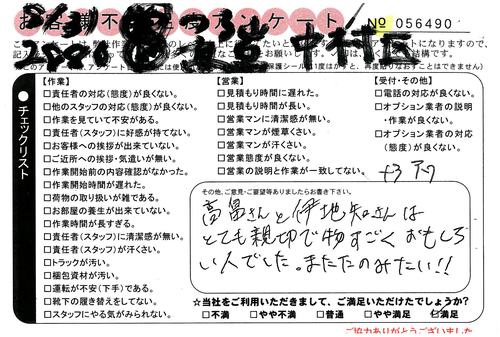 お客様不満足度アンケート
No 056490
【作業】
□責任者の対応(態度)が良くない。
□他のスタッフの対応(態度)が良くない。
□作業を見ていて不安がある。
□責任者(スタッフ)に好感が持てない。
□お客様への挨拶が出来ていない。
□ご近所への挨拶・気遣いが無い。
□作業開始前の内容確認がなかった。
□作業開始時間が遅れた。
□荷物の取り扱いが雑である。
□お部屋の養生が出来ていない。
□作業時間が長すぎる。
□責任者(スタッフ)に清潔感が無い。
□責任者(スタッフ)が汗くさい。
□トラックが汚い。
□梱包資材が汚い。
□運転が不安(下手)である。
□靴下の履き替えをしてない。
□スタッフにやる気がみられない。
【営業】
□見積もり時間に遅れた。
□見積もり時間が長い。
□営業マンに清潔感が無い。
□営業マンが煙草くさい。
□営業マンが汗くさい。
□営業態度が良くない。
□営業の説明と作業が一致してない。
【受付・その他】
□電話の対応が良くない。
□オプション業者の説明
・作業が良くない。
□オプション業者の対応
(態度)が良くない。
チェックリスト
その他、ご意見・ご要望等ありましたらお書き下さい。
高畠さんと伊地知さんは
とても親切で物すごくおもしろ
い人でした。またたのみたい!!
☆当社をご利用いただきまして、ご満足いただけたでしょうか?
□不満 □やや不満 □普通 □やや満足 ☑満足
ご協力ありがとうございました